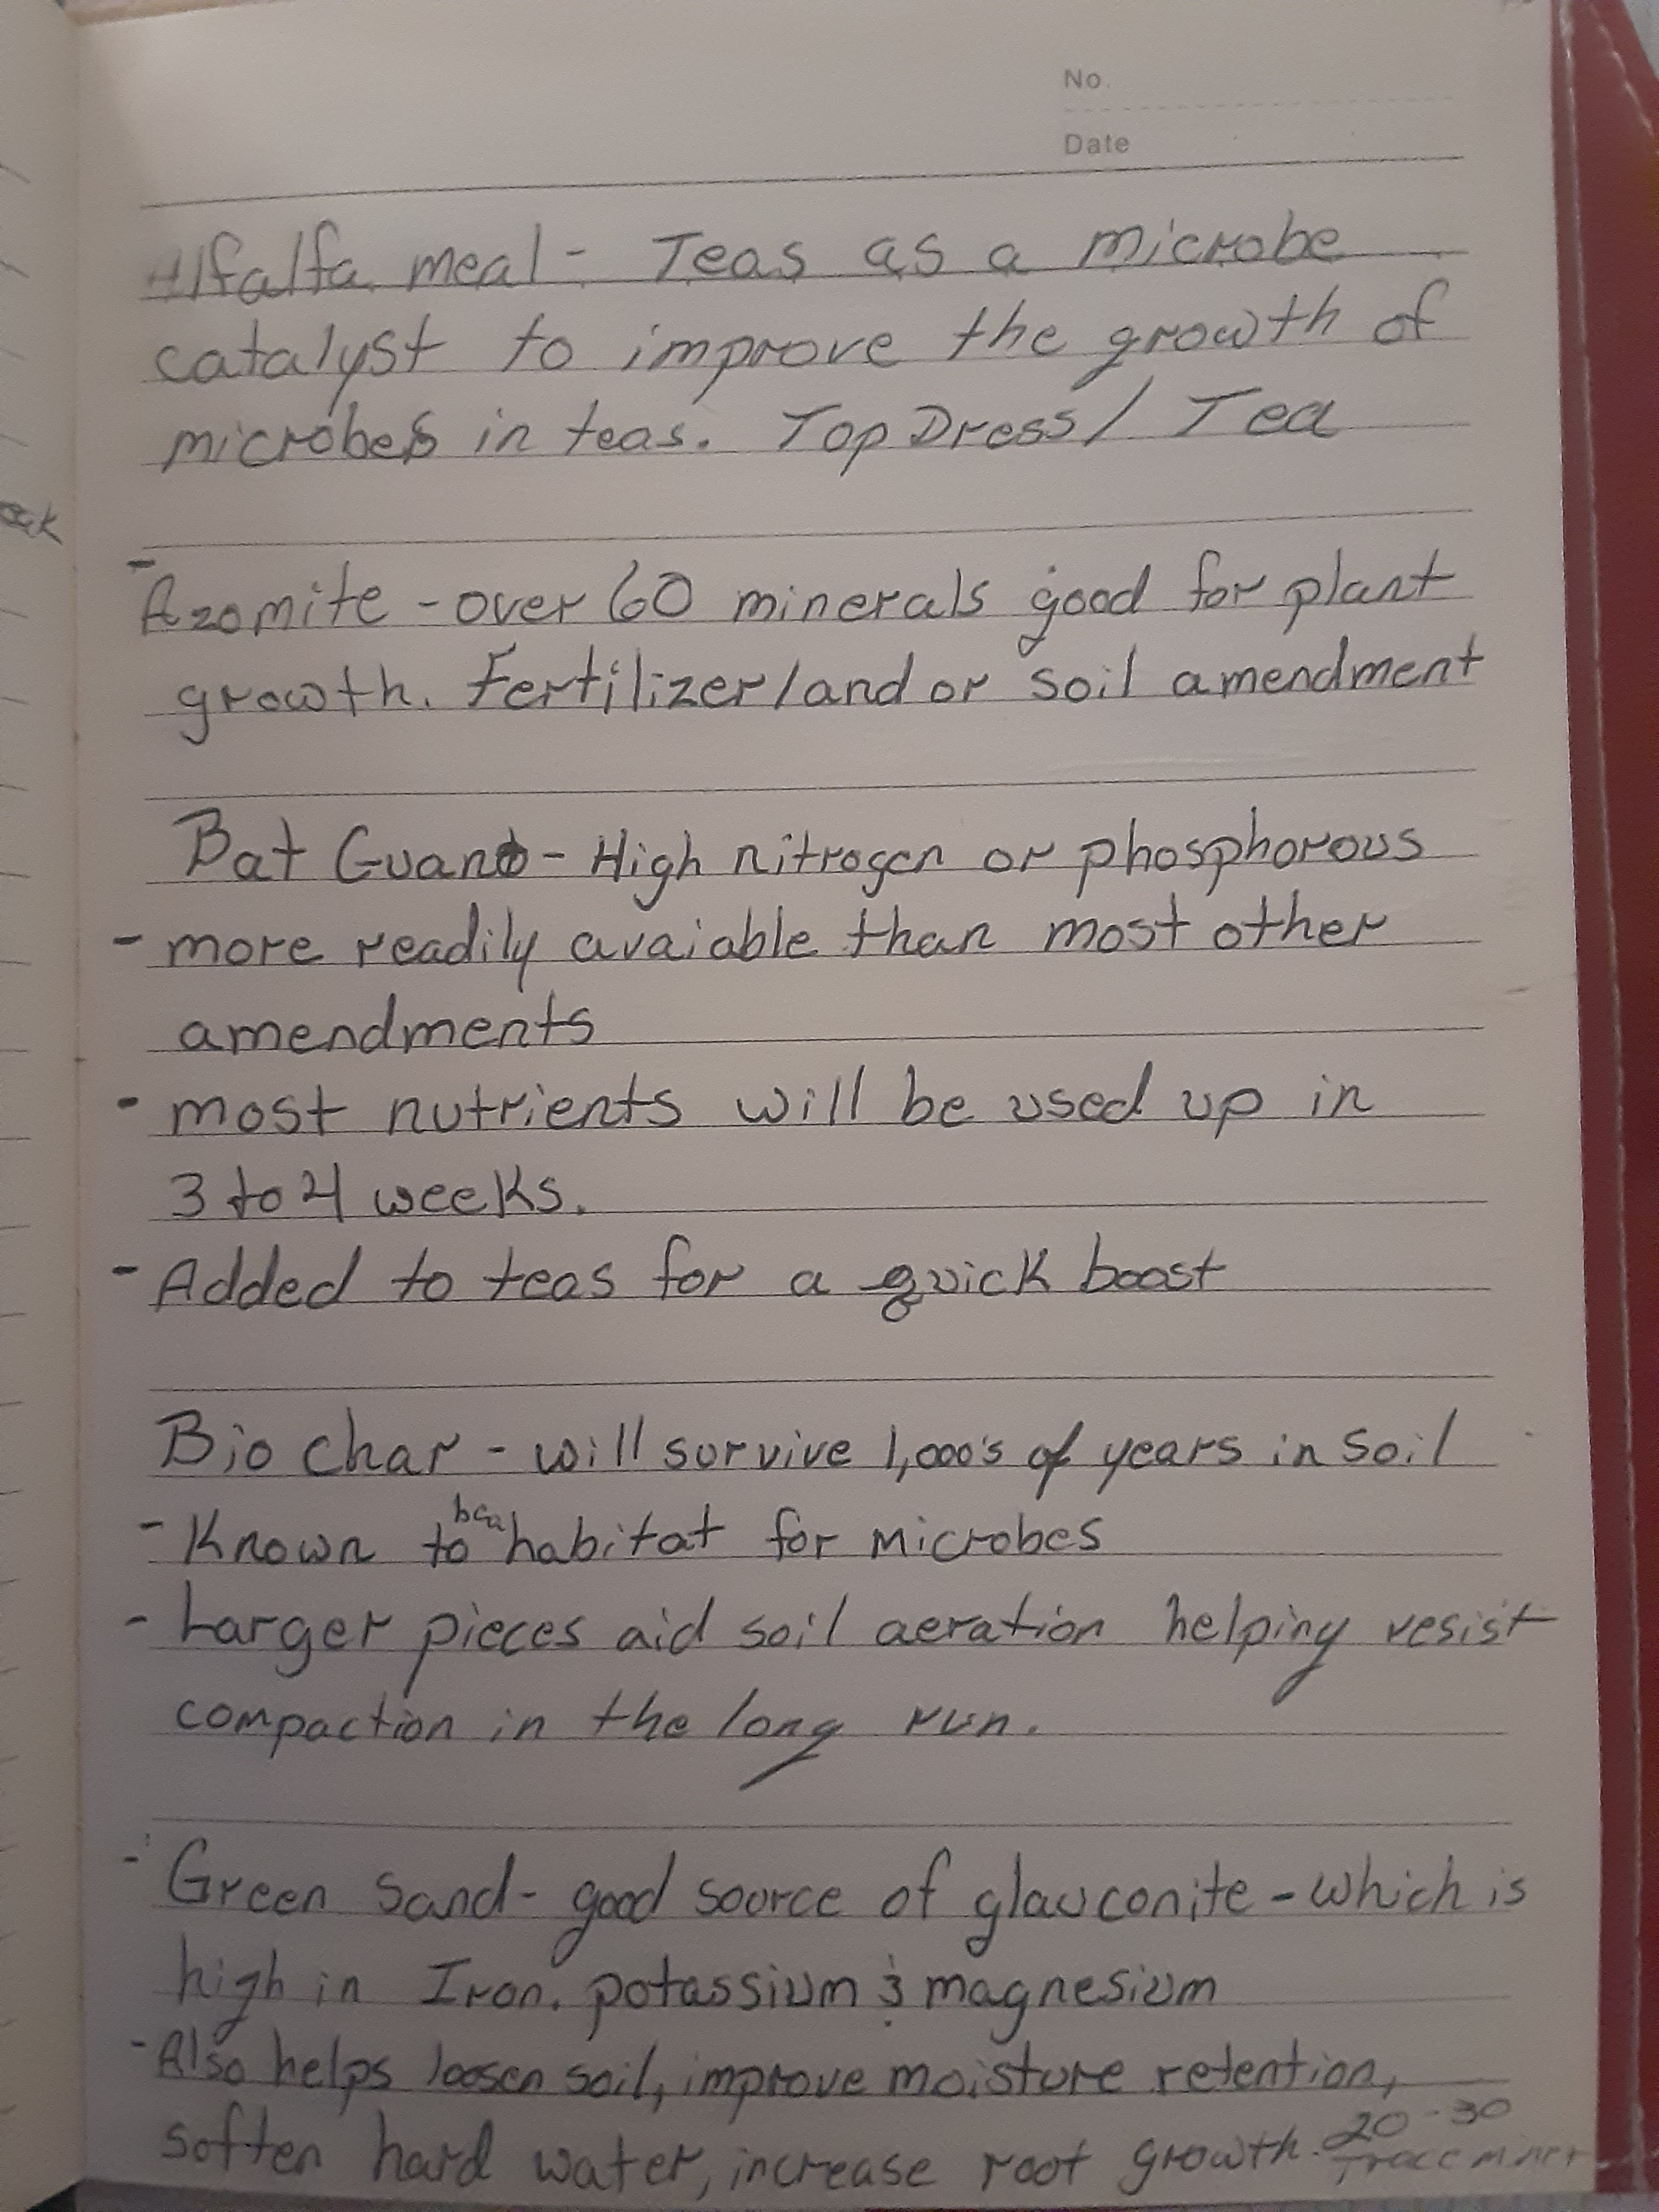 No.
Date
Alfalfa meal - Teas as a microbe
catalyst to improve the growth of
microbes in teas. Top Dress / Tea
- Azomite - over 60 minerals good for plant
growth. Fertilizer / and or soil amendment
Bat Guano - High nitrogen or phosphorous
- more readily avaiable than most other
amendments
- most nutrients will be used up in
3 to 4 weeks.
- Added to teas for a quick boost
Bio char - will survive 1,000's of years in soil
- Known to be a habitat for microbes
- Larger pieces aid soil aeration helping resist
compaction in the long run.
- Green Sand - good source of glauconite - which is
high in Iron. potassium & magnesium
- Also helps loosen soil, improve moisture retention,
soften hard water, increase root growth. 20 - 30
Trace